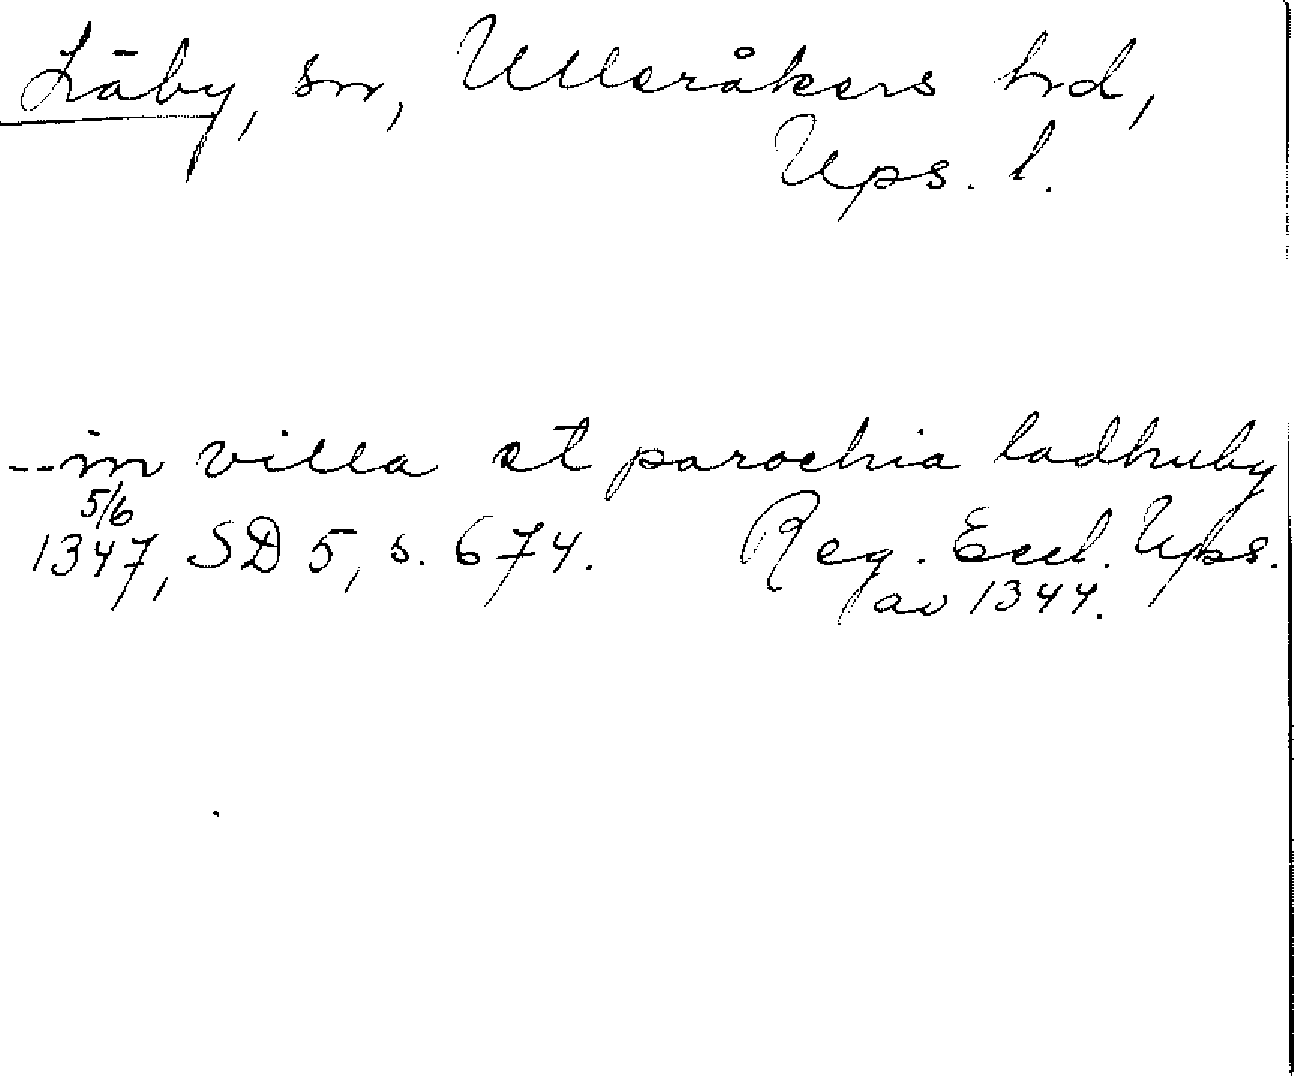 Läby, sn, Ulleråkers hd,
Ups. l.
--in villa et parochia ladhuby
5/6
1347, SD 5, s. 674. Reg. Eccl. Ups.
av 1344.